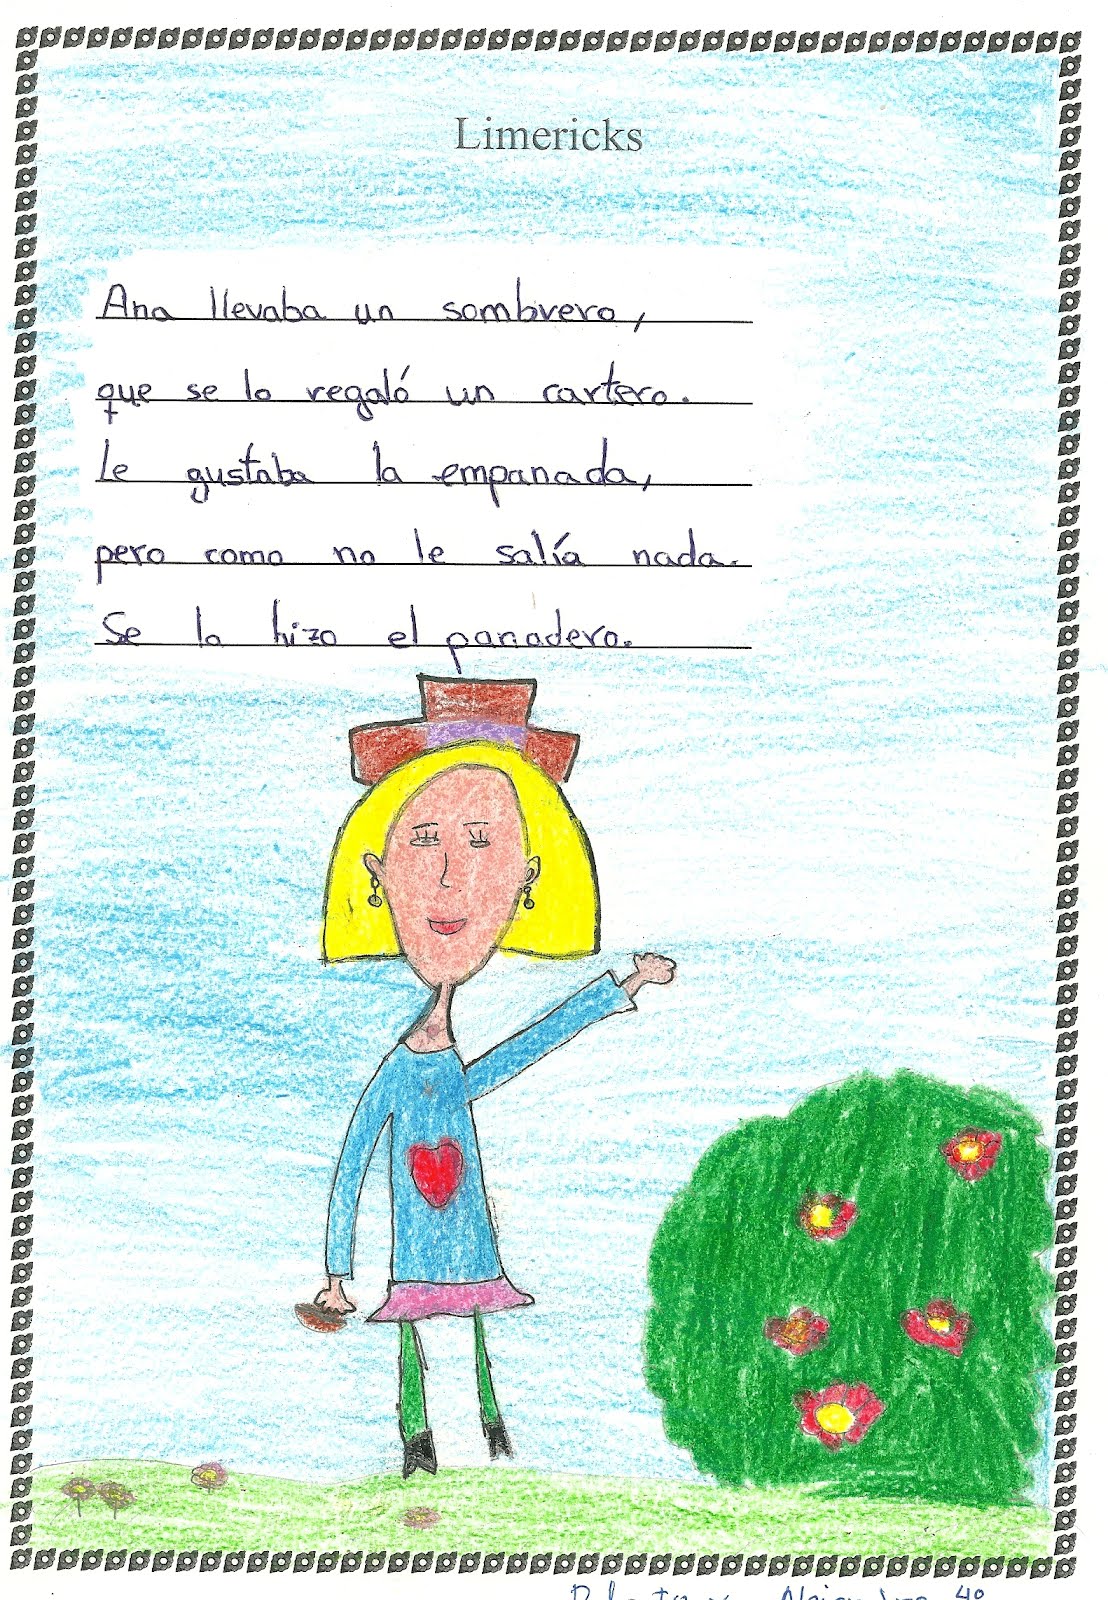 Limericks
Ana llevaba un sombrero,
que se lo regaló un cartero.
Le gustaba la empanada,
pero como no le salía nada.
Se la hizo el panadero.
4º